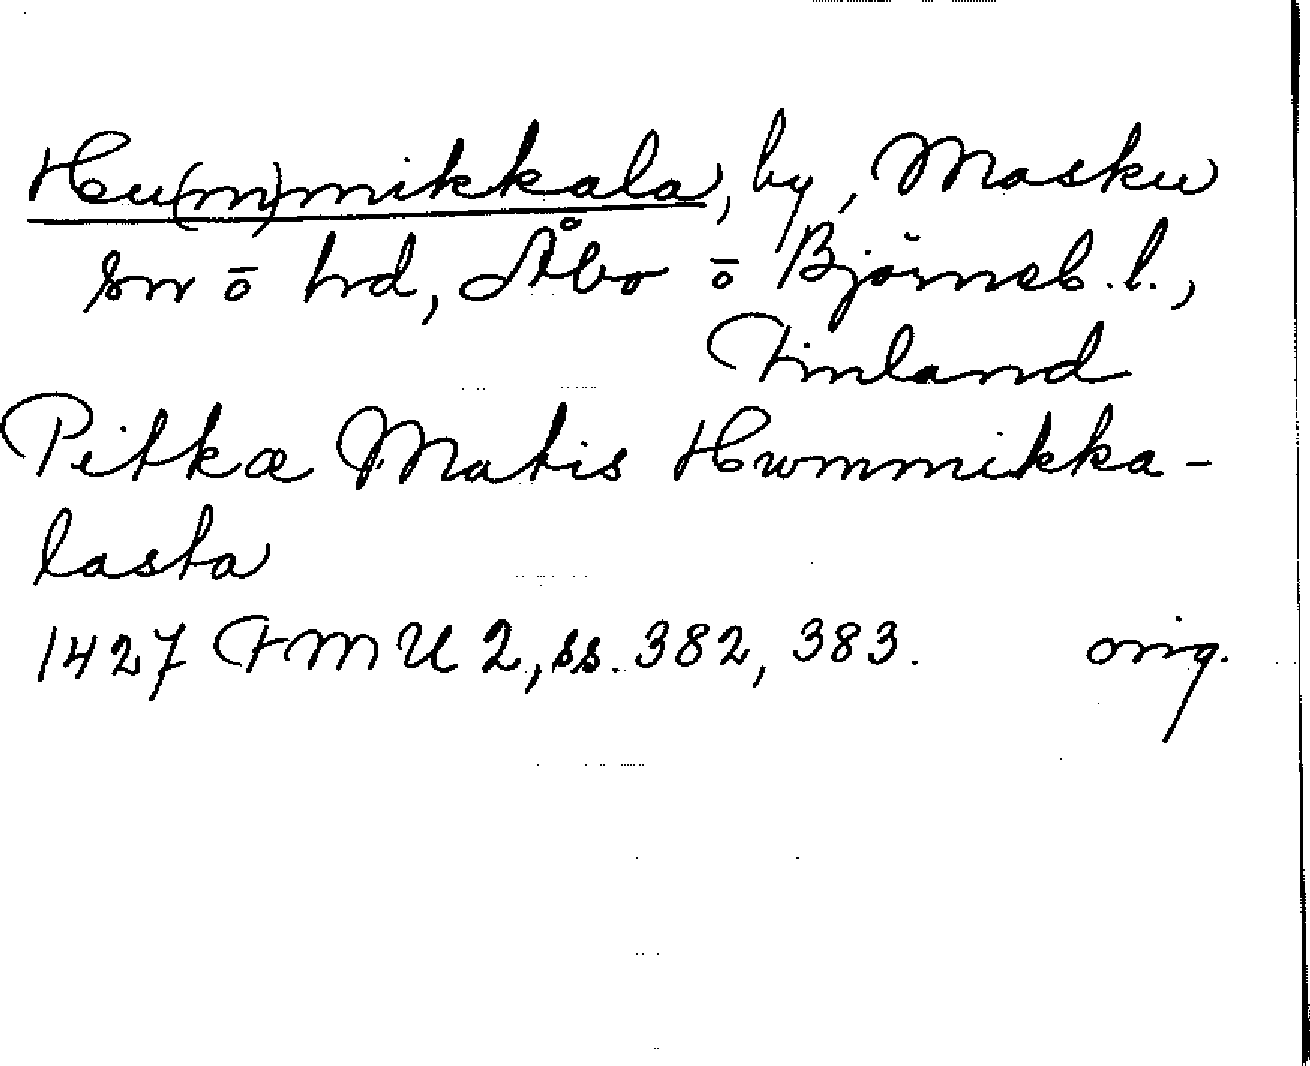 Hu(m)mikkala, by, Masku
sn ō hd, Åbo ō Björneb. l.,
Finland
Pitkæ Matis Hwmmikka-
lasta
1427 FMU 2, ss. 382, 383. orig.